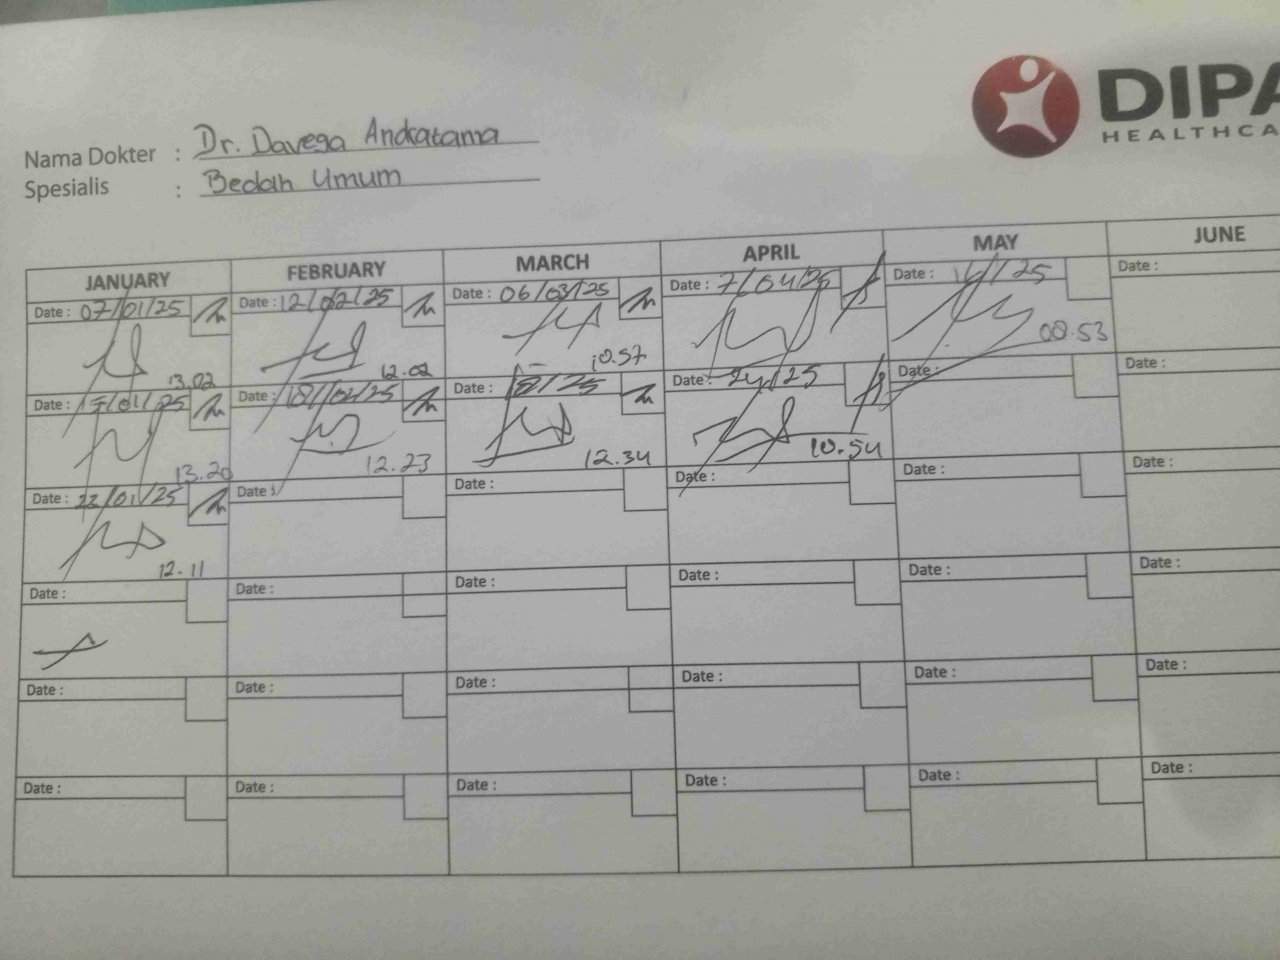 DIPA
HEALTHCA
Nama Dokter : Dr. Davega Andratama
Spesialis : Bedah Umum
JANUARY FEBRUARY MARCH APRIL MAY JUNE
Date : 07/01/25 Date : 12/02/25 Date : 06/03/25 Date : 7/04/25 Date : /25 Date :
13.02 12.02 10.57 08.53
Date : /01/25 Date : 18/02/25 Date : /25 Date : 24/25 Date : Date :
13.20 12.23 12.34 10.54
Date : 22/01/25 Date : Date : Date : Date : Date :
12.11
Date : Date : Date : Date : Date : Date :
Date : Date : Date : Date : Date : Date :
Date : Date : Date : Date : Date : Date :